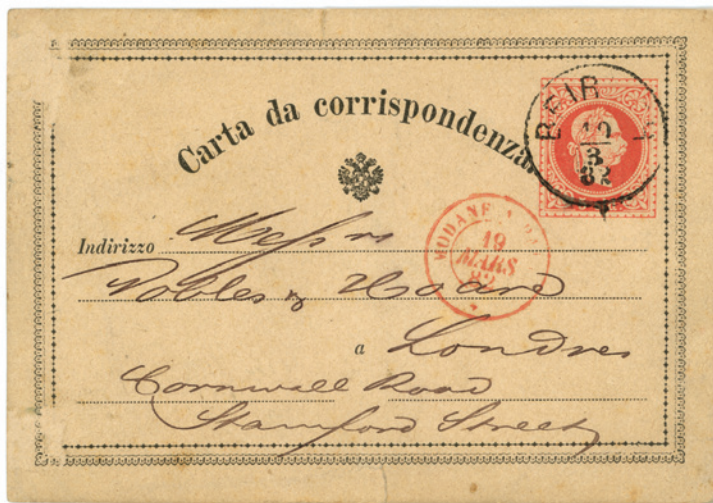 Carta da corrispondenza.
BEIR
10
3
82
MODANE A PA
19
MARS
82
Indirizzo Messrs
Nobles & Hoare
a Londres
Cornwall Road
Stamford Street